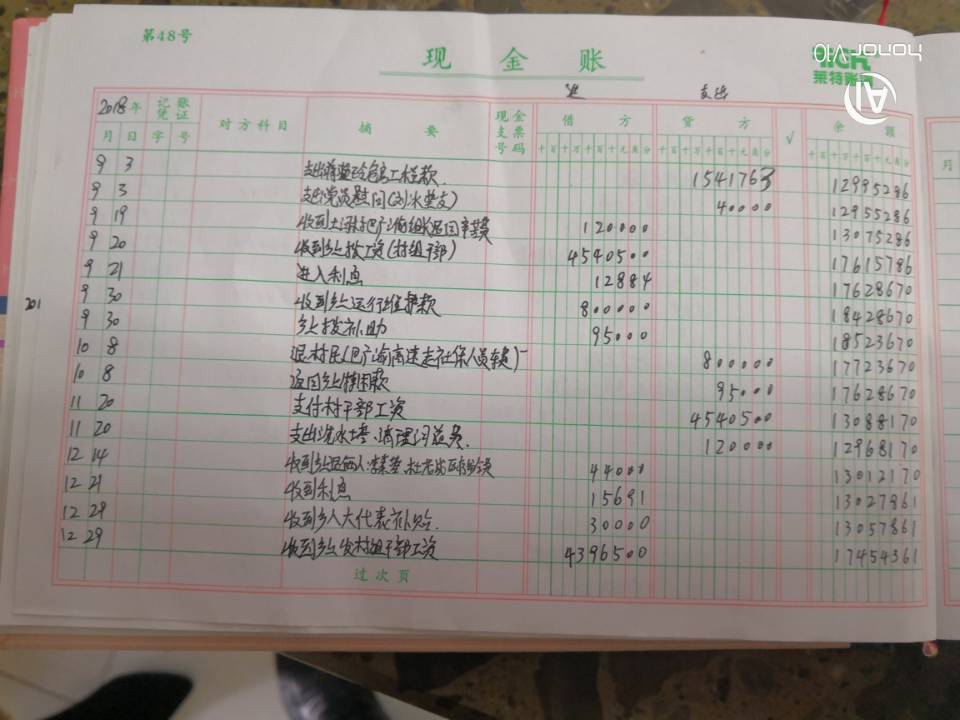 第48号
现 金 账
HONOR V10
AI
莱特账
进 支出
2018年 记账凭证 对方科目 摘要 现金支票号码 借方 贷方 √ 余额
月 日 字 号 千百十万千百十元角分 千百十万千百十元角分 千百十万千百十元角分
9 3 支出 工程款 1541763 12995286
9 3 支出党员慰问( ) 40000 12955286
9 19 收到 120000 13075286
9 20 收到乡上拨工资(村组干部) 4540500 17615786
9 21 进入利息 12884 17628670
201
9 30 收到乡上运行维护款 800000 18428670
9 30 乡上拨补助 95000 18523670
10 8 退村民(巴广渝高速 社保人员 ) 800000 17723670
10 8 返回乡上特困款 95000 17628670
11 20 支付村干部工资 4540500 13088170
11 20 支出洗水塔、清理 费 120000 12968170
12 14 收到乡 44000 13012170
12 21 收到利息 15691 13027861
12 29 收到乡人大代表补贴 30000 13057861
12 29 收到乡上发村组干部工资 4396500 17454361
过次页
月